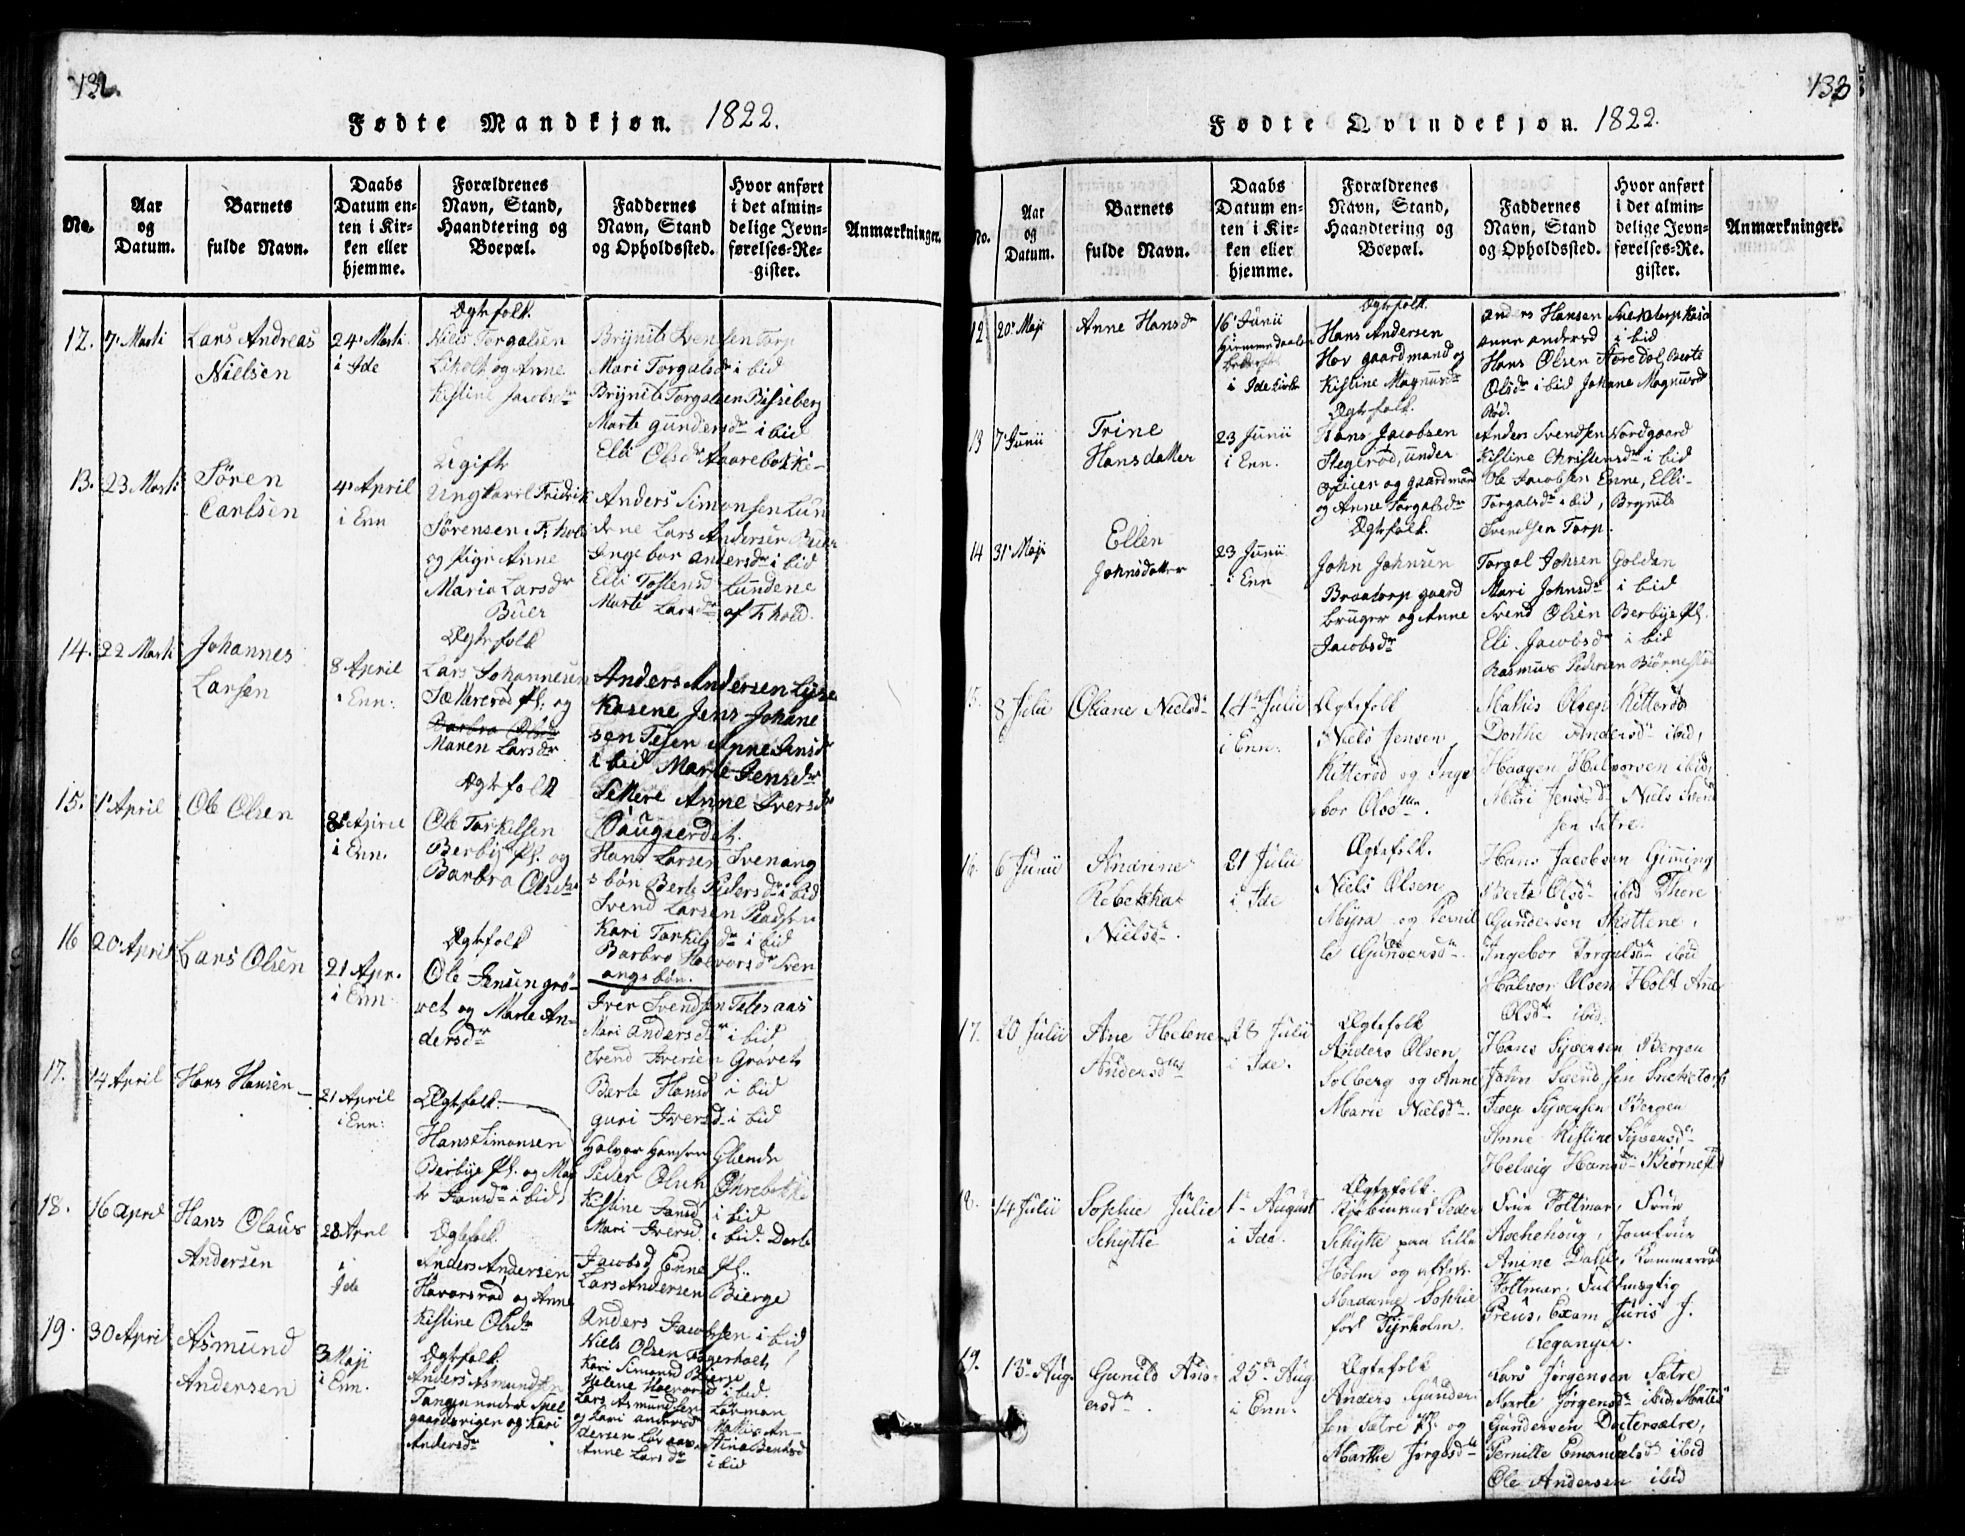 132.
Fødte Mandkjøn. 1822.
No.
Aar
og
Datum.
Barnets
fulde Navn.
Daabs
Datum en-
ten i Kir-
ken eller
hjemme.
Forældrenes
Navn, Stand,
Haandtering og
Boepæl.
Faddernes
Navn, Stand
og Opholdssted.
Hvor anført
i det almin-
delige Jevn-
førelses-Re-
gister.
Anmærkninger.
12. 7 Marti
Lars Andreas
Nielsen
24 Marti
i Ide
Ægtefolk.
Niels Torgalsen
Liholt og Anne
Kistine Jacobsdr
Brynild Svensen Torp
Mari Torgalsdr i bid
Brynild Torgalsen Bisseberg
Marte Gundersdr i bid
Eli Olsdr
13. 23 Marti
Søren
Carlsen
4 April
i Enn
Ugift
Ungkarl Fridrik
Sørensen F: hold
og Pige Anne
Maria Larsdr
Buer
Anders Simonsen Lun
dene Lars Andersen Buer
Ingebor Andersdr i bid
Elli Tostensd Lundene
Marte Larsdr af F: hold.
14. 22 Marti
Johannes
Larsen
8 April
i Enn:
Ægtefolk
Lars Johannesen
og
Maren Larsdr
Anders Andersen
Jens Johane
sen Anne Jensdr
i bid Marte Jensdr
Anne Iversdr
15. 1 April
Ole Olsen
8 April
i Enn.
Ægtefolk
Ole Torkilsen
Berby Pl. og
Barbro Olsdr
Hans Larsen Svenang
sbøn Berte Pedersdr i bid
Svend Larsen
Kari Torkilsdr i bid
Barbro Halvorsdr Sven
angsbøn.
16 20 April
Lars Olsen
21 Apr.
i Enn.
Ægtefolk
Ole Jensen Grø-
vet og Marte An-
dersdr
Iver Svendsen
Mari Andersdr i bid
Svend Iversen Grøvet
Berte Hansd i bid
Guri Iversd i bid
17. 14 April
Hans Hansen
21 April
i Enn:
Ægtefolk.
Hans Simonsen
Berbye Pl. og Mar
te Jansdr i bid
Halvor Hansen Glende
Peder Olsen
Kistine Jansd i bid
Mari Iversd i bid. Dorte
Jacobsd Enne Pl.
18. 16 April
Hans Olaus
Andersen
28 April
i
Ide
Ægtefolk.
Anders Andersen
Havorsrød og Anne
Kistine Olsdr
Lars Andersen Bierge
Anders Jacobsen i bid
Niels Olsen
Kari Simonsd Bierge
Helene Halvorsd i bid.
19. 30 April
Asmund
Andersen
3 Maji
i Enn.
Ægtefolk.
Anders Asmundsen
Tangen under
gaardbriger og Kari
Andersdr
Lars Asmundsen
og Kari Andersd
Anne Larsdr
i bid
133
Fødte Qvindekjøn. 1822.
No.
Aar
og
Datum.
Barnets
fulde Navn.
Daabs
Datum en-
ten i Kir-
ken eller
hjemme.
Forældrenes
Navn, Stand,
Haandtering og
Boepæl.
Faddernes
Navn, Stand
og Opholdssted.
Hvor anført
i det almin-
delige Jevn-
førelses-Re-
gister.
Anmærkninger.
12 20 Maji
Anne Hansdr
16 Junii
i Ide Kirke
Ægtefolk.
Hans Andersen
Hov gaardmand og
Kistine Magnusdr
Anders Hansen
Anne Andersd i bid
Hans Olsen Berte
Olsdr i bid Johane Magnusdr
Rød.
13 7 Junii
Trine
Hansdatter
23 Junii
i Enn.
Ægtefolk.
Hans Jacobsen
Stegerød, under
og gaardmand
og Anne Torgalsdr
Anders Svendsen Nordgaard
Kistine Christensdr i bid
Ole Jacobsen Enne, Elli
Torgalsdr i bid, Brynild
Svendsen Torp.
14 31 Maji
Ellen
Johnsdatter
23 Junii
i Enn
Ægtefolk.
John Johnsen
Braatorp gaard
bruger og Anne
Jacobsdr
Torgal Johsen
Mari Johnsdr i bid
Svend Olsen Berbye Pl.
Eli Jacobsdr i bid
Rasmus Pedersen Biørnestad
15. 8 Julii
Oliane Nielsdr
14 Julii
i Enn:
Ægtefolk
Niels Jensen
Kitterød og Inge
bor Olsdtr.
Mathis Olsen Kitterød
Dorthe Andersdr ibid,
Haagen Halvorsen ibid,
Mari Jensdr Niels Svend
sen Sætre.
16. 6 Junii
Andrine
Rebekka
Nielsdr.
21 Julii
i Ide
Ægtefolk.
Niels Olsen
Myra og Pernil
le Gundersdr.
Hans Jacobsen Gimming
Berte Olsdr ibid Thore
Gundersen Skottene,
Ingebor Torgalsdr ibid
Halvor Olsen Holt Ane
Olsdr ibid.
17. 20 Julii
Ane Helene
Andersdtr
28 Julii
i Ide.
Ægtefolk
Anders Olsen
Solberg og Anne
Marie Nielsdr.
Hans Syversen Bergen
John Svendsen Sneketorp
Iver Syversen Bergen
Anne Kistine Syversdr
Helvig Hansdr Biørnestd
18. 14 Julii
Sophie Julie
Schytte
1 August
i Ide.
Ægtefolk.
Kjøbmand Peder
Schytte paa Lille
Holm og
Madame Sophie
fød Tyrholm.
Frue Foltmar, Frue
Aschehoug, Jomfrue
Anine Dahl, Kammerraad
Foltmar, Fuldmægtig
Preus, Exam Juris J.
Leganger.
19. 13 Aug.
Gunild And-
ersdr.
25 Aug
i Enn.
Ægtefolk
Anders Gunder
sen Sætre Pl. og
Marthe Jørgensdr
Lars Jørgensen Sætre
Marte Jørgensdr ibid, Mathis
Gundersen
Pernille Emanuelsdr ibid
Ole Andersen ibid